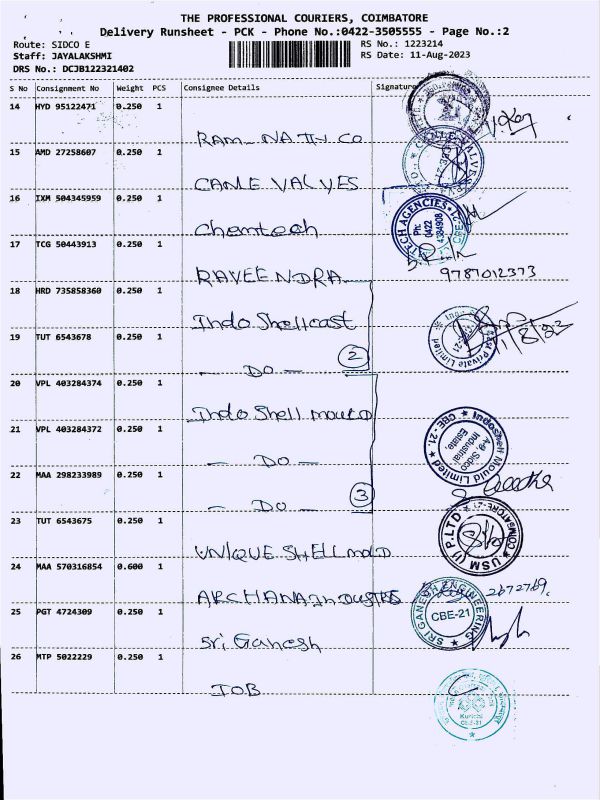 THE PROFESSIONAL COURIERS, COIMBATORE
Delivery Runsheet - PCK - Phone No.:0422-3505555 - Page No.:2
Route: SIDCO E
RS No.: 1223214
Staff: JAYALAKSHMI
RS Date: 11-Aug-2023
DRS No.: DCJB122321402
S No Consignment No Weight PCS Consignee Details Signature
14 HYD 95122471 0.250 1
RAM NATH CO
15 AMD 27258607 0.250 1
CAMLE VALVES
16 IXM 504345959 0.250 1
Chemtech
TECH AGENCIES
Ph: 0422 4334908
17 TCG 50443913 0.250 1
9787012373
RAVEENDRA
18 HRD 735858360 0.250 1
Indo Shellcast
19 TUT 6543678 0.250 1
11/8/23
— DO — 2
20 VPL 403284374 0.250 1
Indo Shell mould
21 VPL 403284372 0.250 1
Indoshell Mould Limited
A-9, Sidco Industrial Estate,
CBE - 21.
— DO —
22 MAA 298233989 0.250 1
— DO — 3
23 TUT 6543675 0.250 1
USM (I) P.LTD
COIMBATORE-21
UNIQUE SHELL mold
24 MAA 570316854 0.600 1
2672769.
ARCHANA Industries
25 PGT 4724309 0.250 1
SRI GANESH ENGINEERING
CBE-21
Sri Ganesh
26 MTP 5022229 0.250 1
IOB
Kurichi
CBE-21